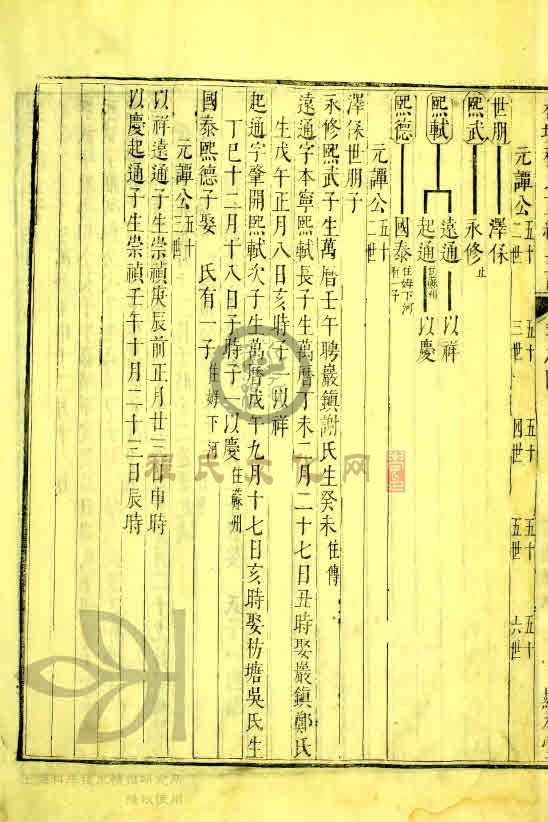 元譚公五十二世 五十三世 五十四世 五十五世 五十六世
世朋 澤保
熙武 永修止
熙軾 遠通 以祥
起通住蘇州 以慶
熙德 國泰住姆下河有一子
元譚公五十二世
澤保世朋子
永修熙武子生萬曆壬午聘巖鎮謝氏生癸未住傳
遠通字本寧熙軾長子生萬曆丁未二月二十七日丑時娶巖鎮鄭氏
生戊午正月八日亥時子一以祥
起通字肇開熙軾次子生萬曆戊午九月十七日亥時娶枋塘吳氏生
丁巳十二月十八日子時子一以慶住蘇州
國泰熙德子娶 氏有一子住姆下河
元譚公五十三世
以祥遠通子生崇禎庚辰前正月廿三日申時
以慶起通子生崇禎壬午十月二十三日辰時
程氏文化网